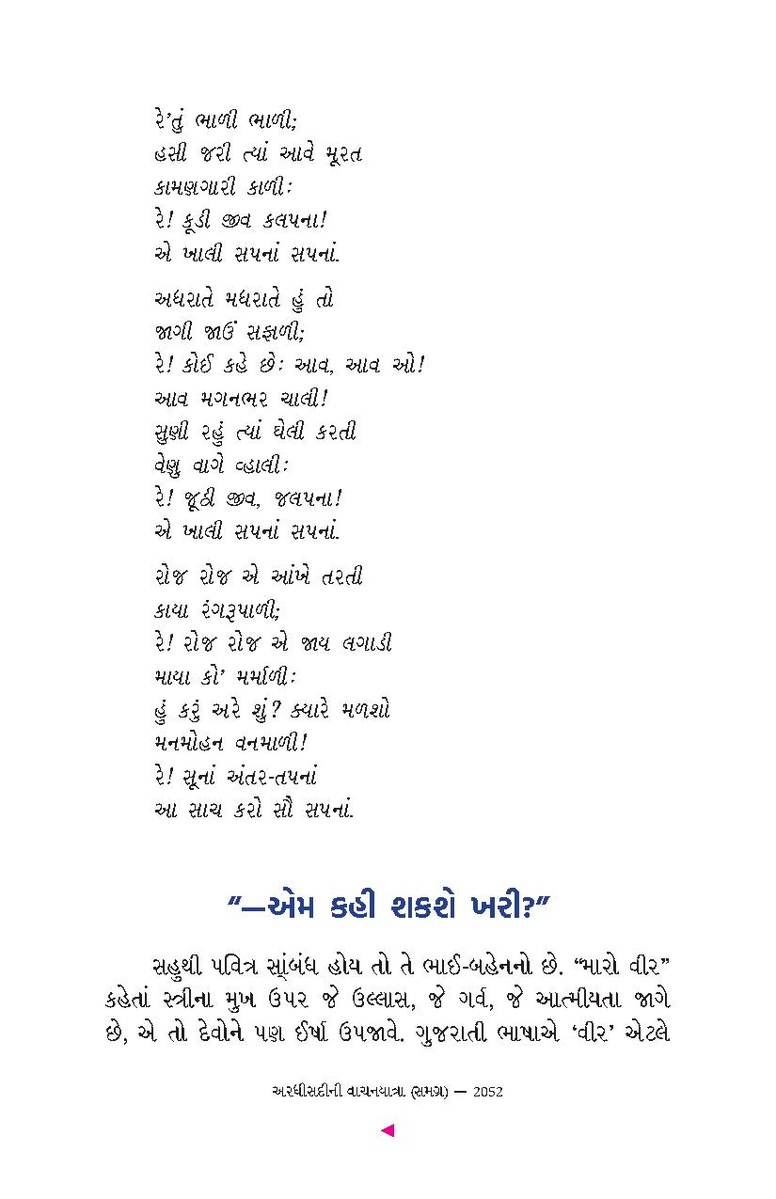 રે'તું ભાળી ભાળી;
હસી જરી ત્યાં આવે મૂરત
કામણગારી કાળીઃ
રે! કૂડી જીવ કલપના!
એ ખાલી સપનાં સપનાં.
અધરાતે મધરાતે હું તો
જાગી જાઉં સફાળી;
રે! કોઈ કહે છેઃ આવ, આવ ઓ!
આવ મગનભર ચાલી!
સુણી રહું ત્યાં ઘેલી કરતી
વેણુ વાગે વ્હાલીઃ
રે! જૂઠી જીવ, જલપના!
એ ખાલી સપનાં સપનાં.
રોજ રોજ એ આંખે તરતી
કાયા રંગરૂપાળી;
રે! રોજ રોજ એ જાય લગાડી
માયા કો' મર્માળીઃ
હું કરું અરે શું? ક્યારે મળશો
મનમોહન વનમાળી!
રે! સૂનાં અંતર-તપનાં
આ સાચ કરો સૌ સપનાં.
“—એમ કહી શકશે ખરી?”
સહુથી પવિત્ર સાંબંધ હોય તો તે ભાઈ-બહેનનો છે. “મારો વીર”
કહેતાં સ્ત્રીના મુખ ઉપર જે ઉલ્લાસ, જે ગર્વ, જે આત્મીયતા જાગે
છે, એ તો દેવોને પણ ઈર્ષા ઉપજાવે. ગુજરાતી ભાષાએ ‘વીર’ એટલે
અરધીસદીની વાચનયાત્રા (સમગ્ર) — 2052